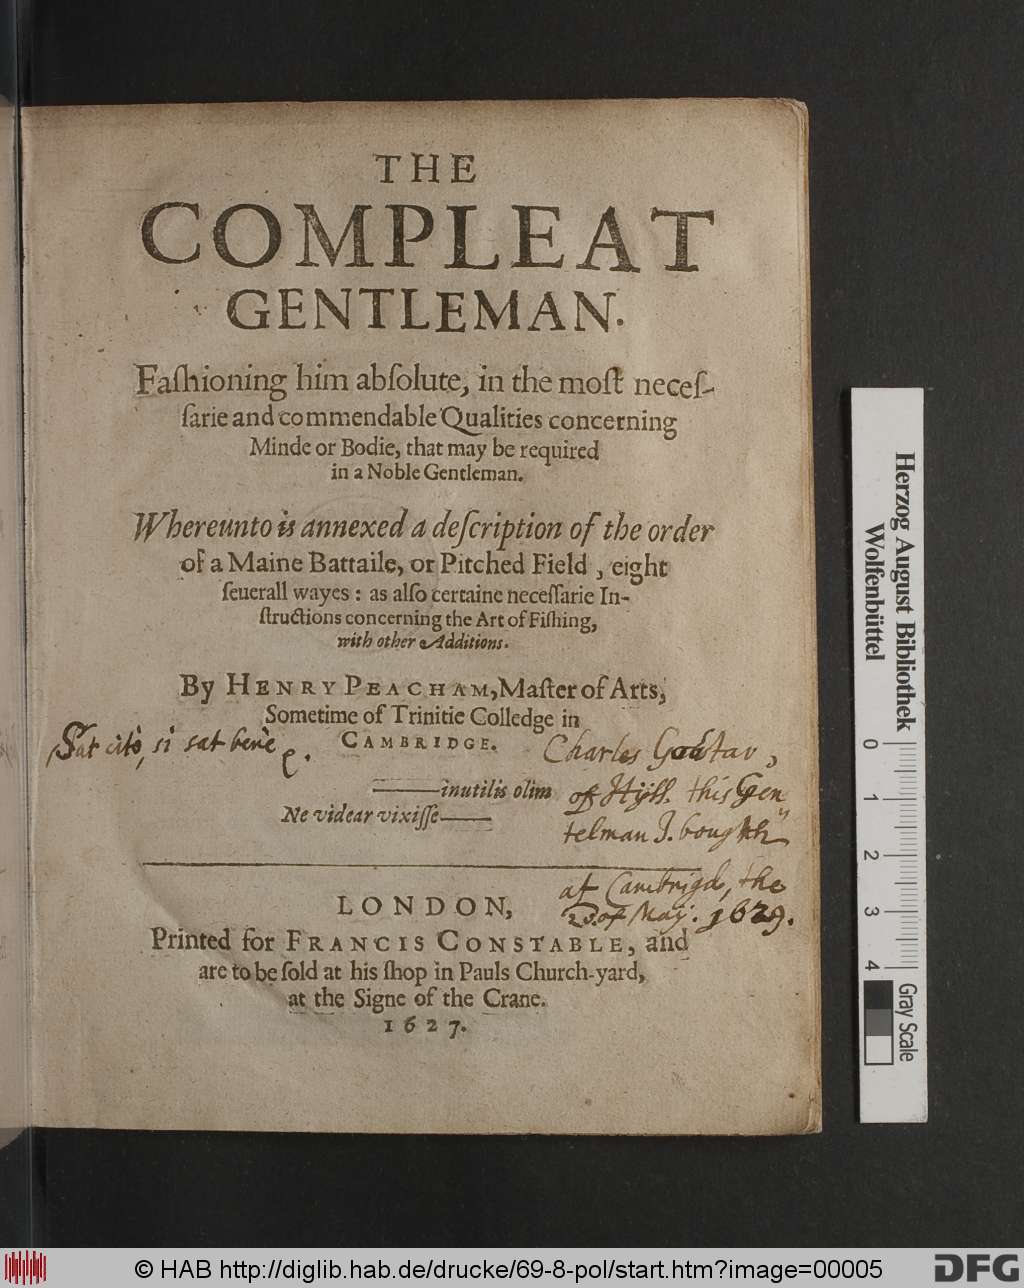 THE
COMPLEAT
GENTLEMAN.
Faſhioning him abſolute, in the moſt neceſ-
ſarie and commendable Qualities concerning
Minde or Bodie, that may be required
in a Noble Gentleman.
Whereunto is annexed a deſcription of the order
of a Maine Battaile, or Pitched Field, eight
ſeuerall wayes: as alſo certaine neceſſarie In-
ſtructions concerning the Art of Fiſhing,
with other Additions.
By HENRY PEACHAM, Maſter of Arts,
Sometime of Trinitie Colledge in
CAMBRIDGE.
Sat citò, si sat benè
——inutilis olim
Ne videar vixiſſe——
Charles Gustav,
of Hyll. this Gen
telman I. bought
at Cambrigd, the
of May. 1629.
LONDON,
Printed for FRANCIS CONSTABLE, and
are to be ſold at his ſhop in Pauls Church-yard,
at the Signe of the Crane.
1627.
Herzog August Bibliothek
Wolfenbüttel
0
1
2
3
4
Gray Scale
© HAB http://diglib.hab.de/drucke/69-8-pol/start.htm?image=00005
DFG